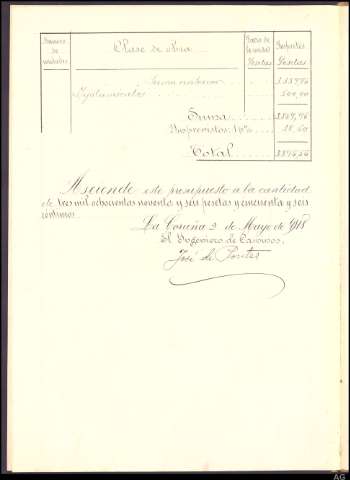 Número de unidades
Clase de obra
Precio de la unidad Pesetas
Importes Pesetas
Suma anterior
3.357,96
500,00
Suma
Imprevistos 1 p%
38,60
Total
3896,56
Asciende este presupuesto a la cantidad
de tres mil ochocientas noventa y seis pesetas y cincuenta y seis
céntimos.
La Coruña 2 de Mayo de 1918
El Ingeniero de Caminos,
José de
AG